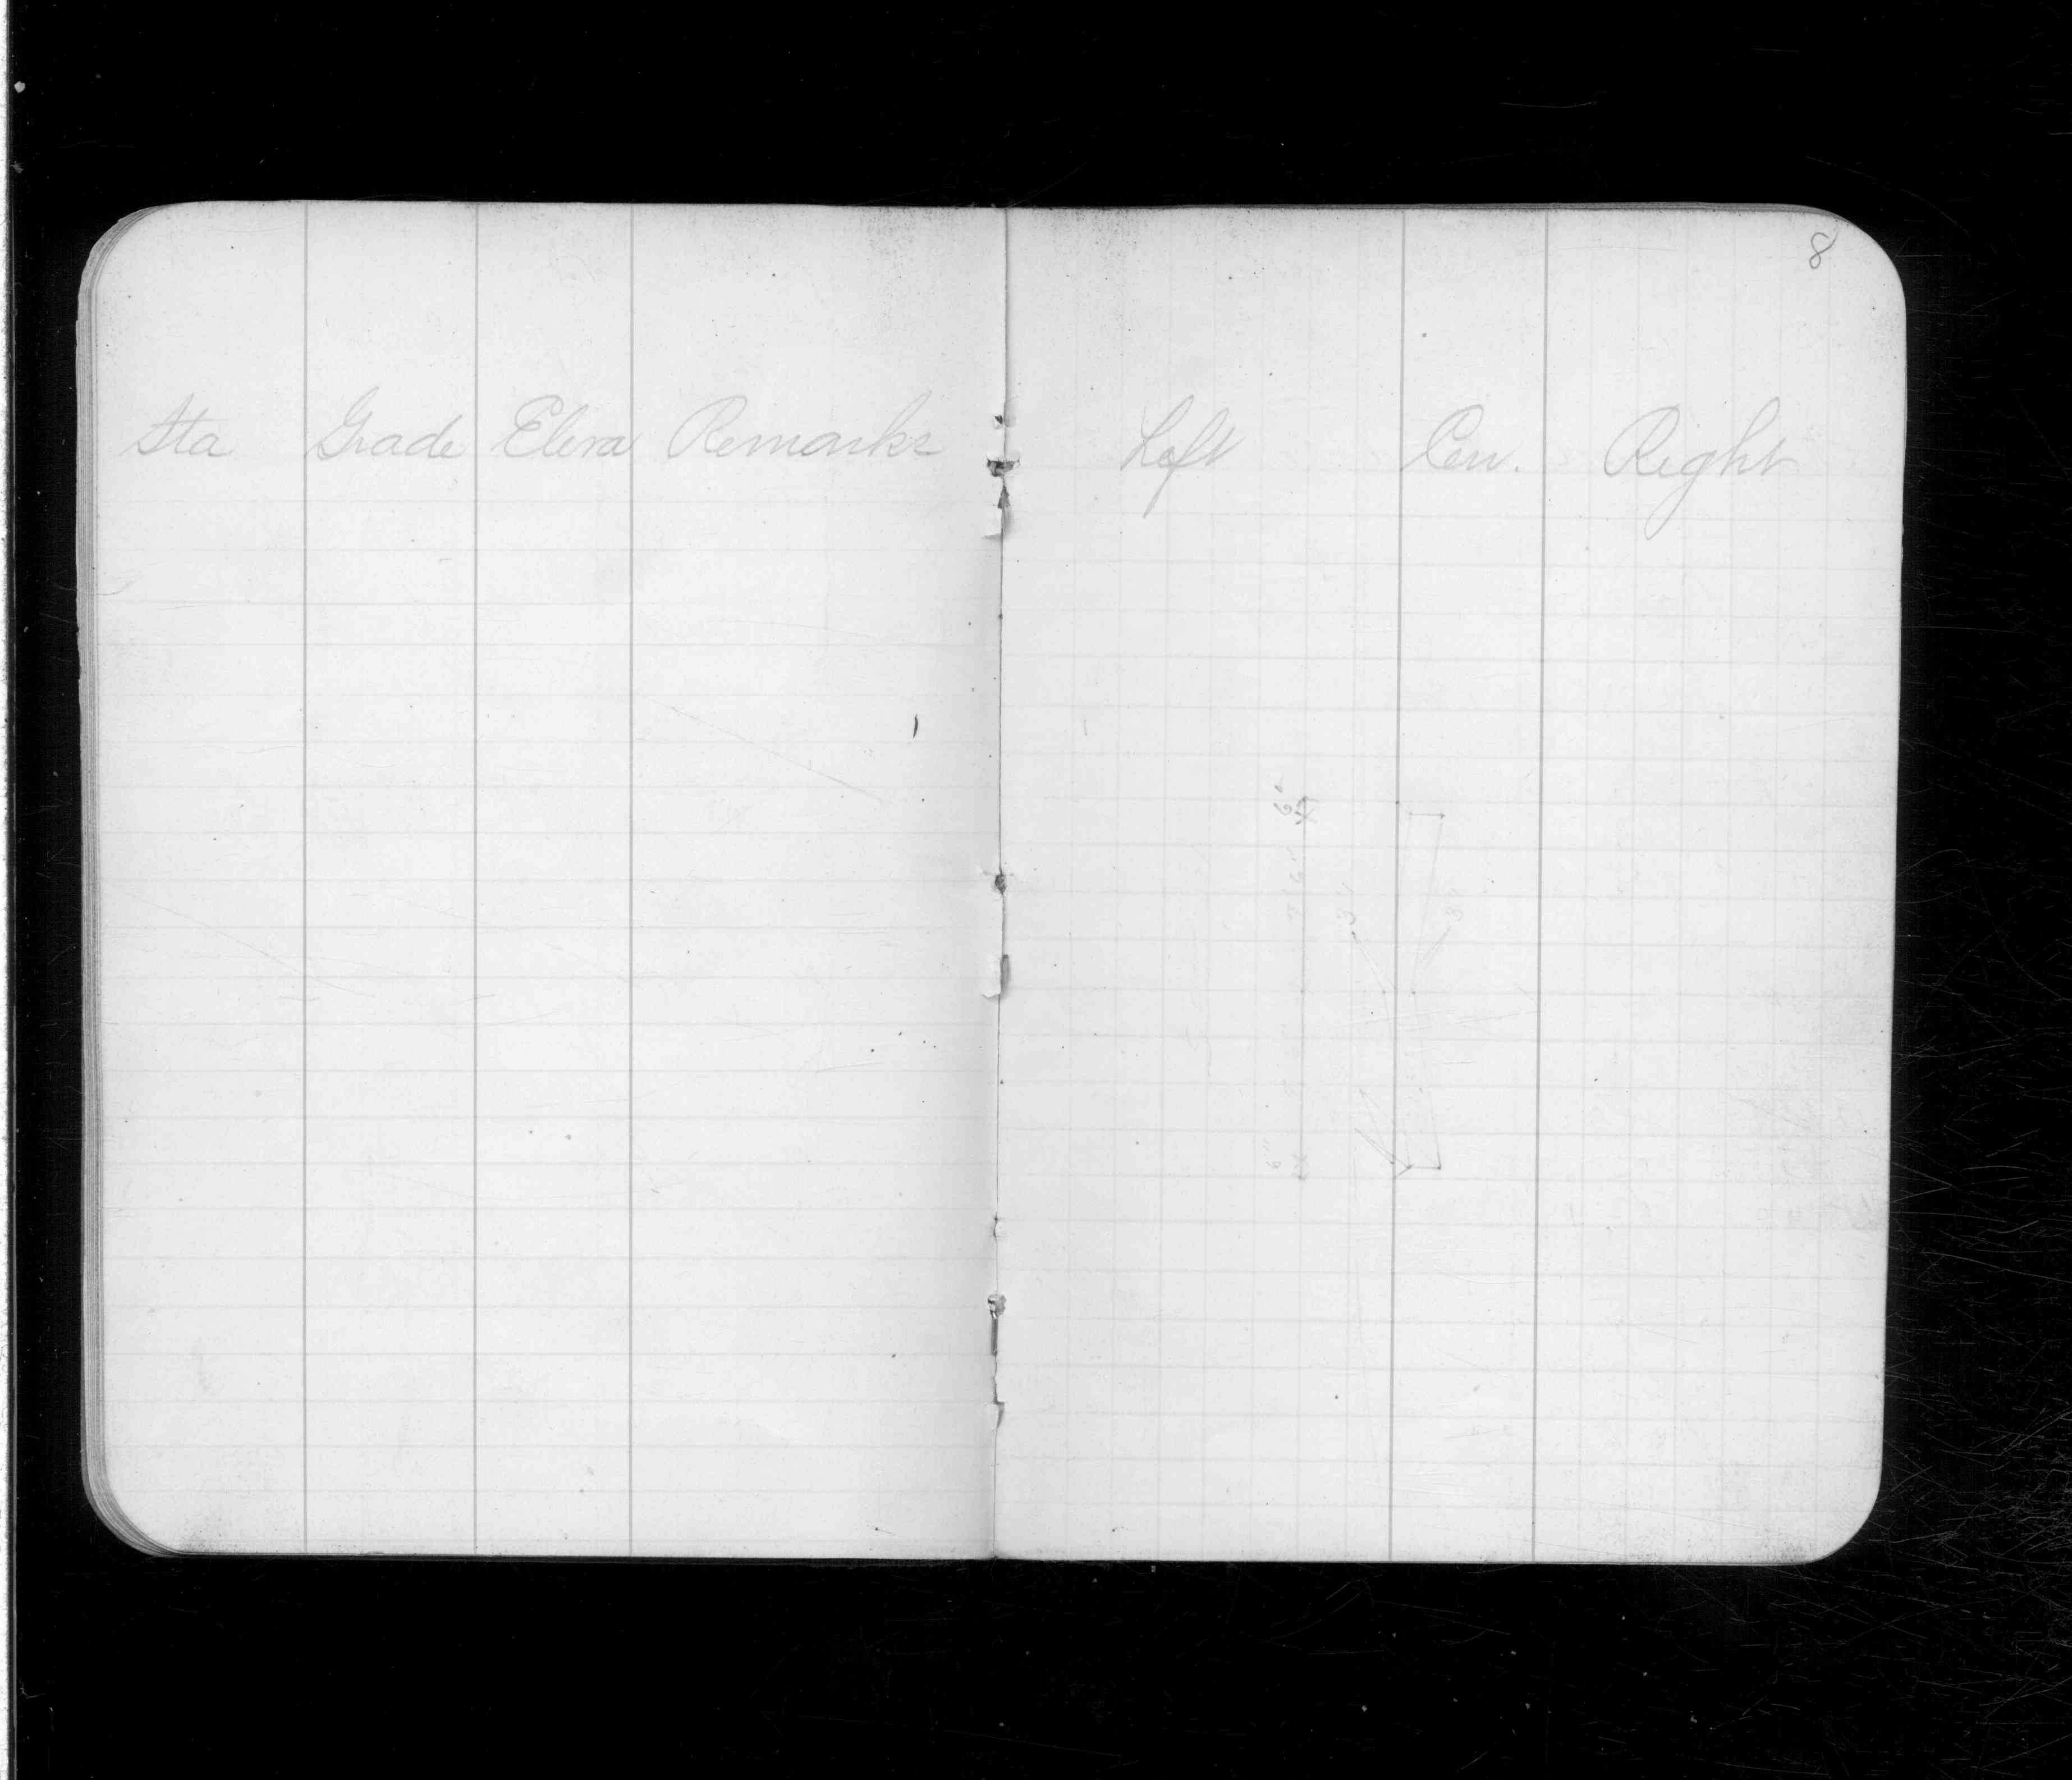 8
Sta Grade Eleva Remarks Left Cen. Right
6"
3'
3'
6"